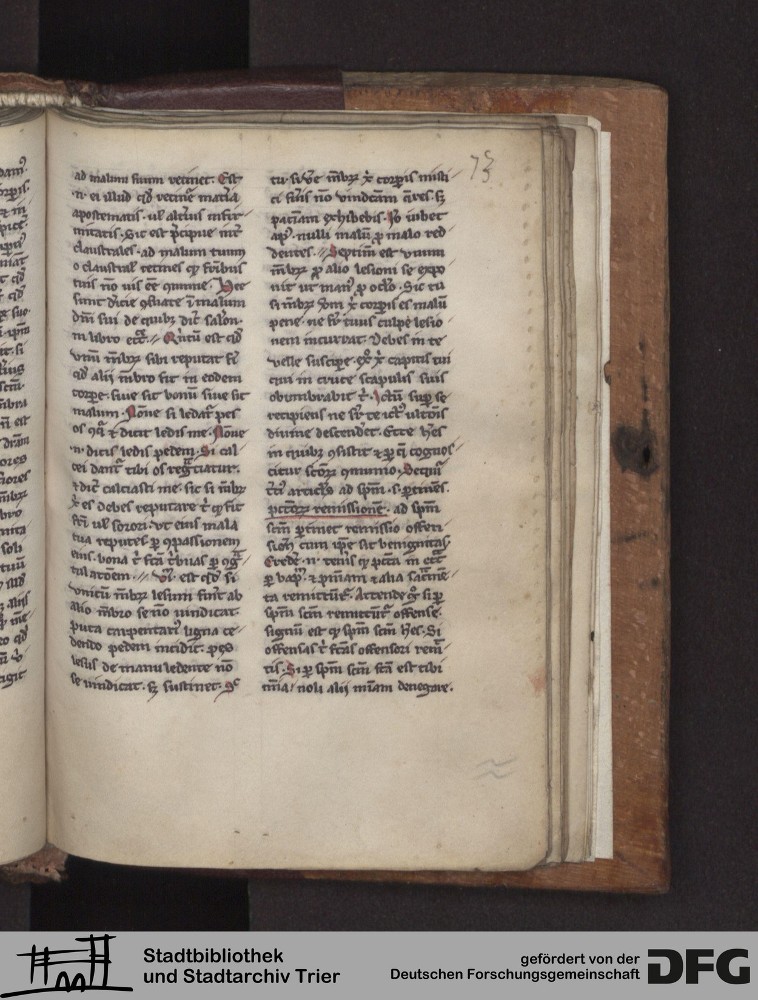 73
ad malum suum retinet. Est
.n. ei illud qd retinet materia
apostematis. ul alterius infir
mitatis. Sic est precipue inter
claustrales. ad malum tuum
o claustral retines qd fribus
tuis no uis ee qmune. Hec
sunt dicie qseruate in malum
dni sui de quibz dicit salon.
in libro ecc. Quintum est qd
vnum mbrz sibi reputat fieri
qd alii mbro fit in eodem
corpe. siue sit bonu siue sit
malum. None si ledat pes
os qrit & dicit ledis me. None
.n. dicis ledis pedem. Si cal
cei dant tibi os regratiatur.
& dic calciasti me. sic si mbrz
x es debes reputare t qd fit
fri ul sorori. vt eius mala
tua reputes p qpassionem
eius. bona t fca tribuas p qgra
tulatoem. est qd si
vnicu mbrz lesum fuit ab
alio mbro se no uindicat.
puta carpentari ligna ce
dendo pedem incidit. pes
lesus de manu ledente no
se uindicat. sz sustinet. Sic
tu. si ue mbrz x corpis misti
ci sis no vindcam qres. sz
pacitam exhibebis. Io iubet
ap. nulli malu p malo red
dentes. Septim est vnum
mbrz p alio lesioni se expo
nit ut man p oclo. Sic tu
si mbrz um x corpis es malu
pene. ne fr tuus culpe lesio
nem incurrat. Debes in te
velle suscipe. ex x capitis tui
qui in cruce scapulis suis
obumbrabit t. Ictu sup se
recipiens ne sr te ict ultois
diuine descendet. Ecce hes
in quibz qsistit & p q cognos
citur scorz qmunio. Sequit
tci articls ad spm. s. ptines.
pctorz remissione. ad spm
scm ptinet remissio offen
sionu cum ipe sit benignitas.
Crede .n. teneris qd pcta in ecca
p bap. & pniam & alia sacrame
ta remittunt. Attende g si p
spm scm remittunt offense.
signu est qd spm scm hes. Si
offensas t fcas offensori remi
tis. Si p spm scm fca est tibi
mia. noli alii miam denegare.
Stadtbibliothek
und Stadtarchiv Trier
gefördert von der
Deutschen Forschungsgemeinschaft
DFG